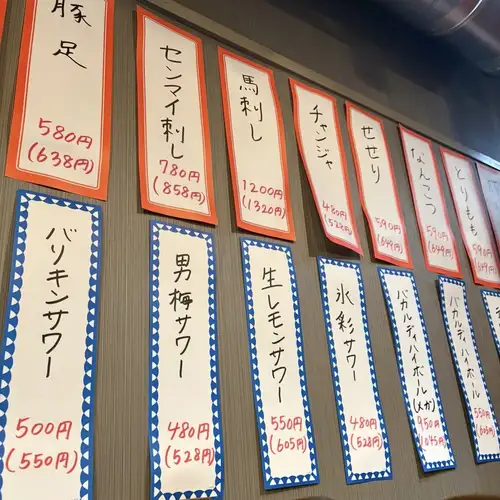 豚足
580円
(638円)
センマイ刺し
780円
(858円)
馬刺し
1200円
(1320円)
チャンジャ
480円
(528円)
せせり
590円
(649円)
なんこつ
590円
(649円)
とりもも
590円
(649円)
バリキンサワー
500円
(550円)
男梅サワー
480円
(528円)
生レモンサワー
550円
(605円)
氷彩サワー
480円
(528円)
バカルディハイボール(メガ)
950円
(1045円)
バカルディハイボール
550円
(605円)